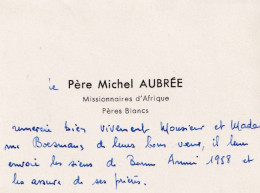 le Père Michel AUBRÉE
Missionnaires d'Afrique
Pères Blancs
remercie bien vivement Monsieur et Mada
me Boesmans de leurs bons vœux, il leur
envoie les siens de Bonne Année 1958 et
les assure de ses prières.